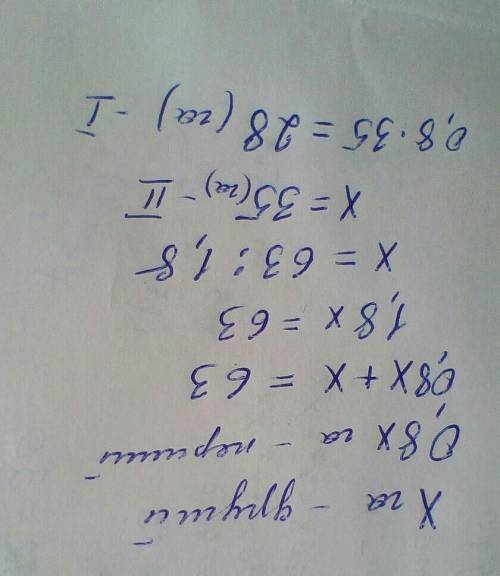 X га - другий
0,8x га - перший
0,8X + X = 63
1,8x = 63
x = 63 : 1,8
x = 35 (га) - II
0,8 · 35 = 28 (га) - I